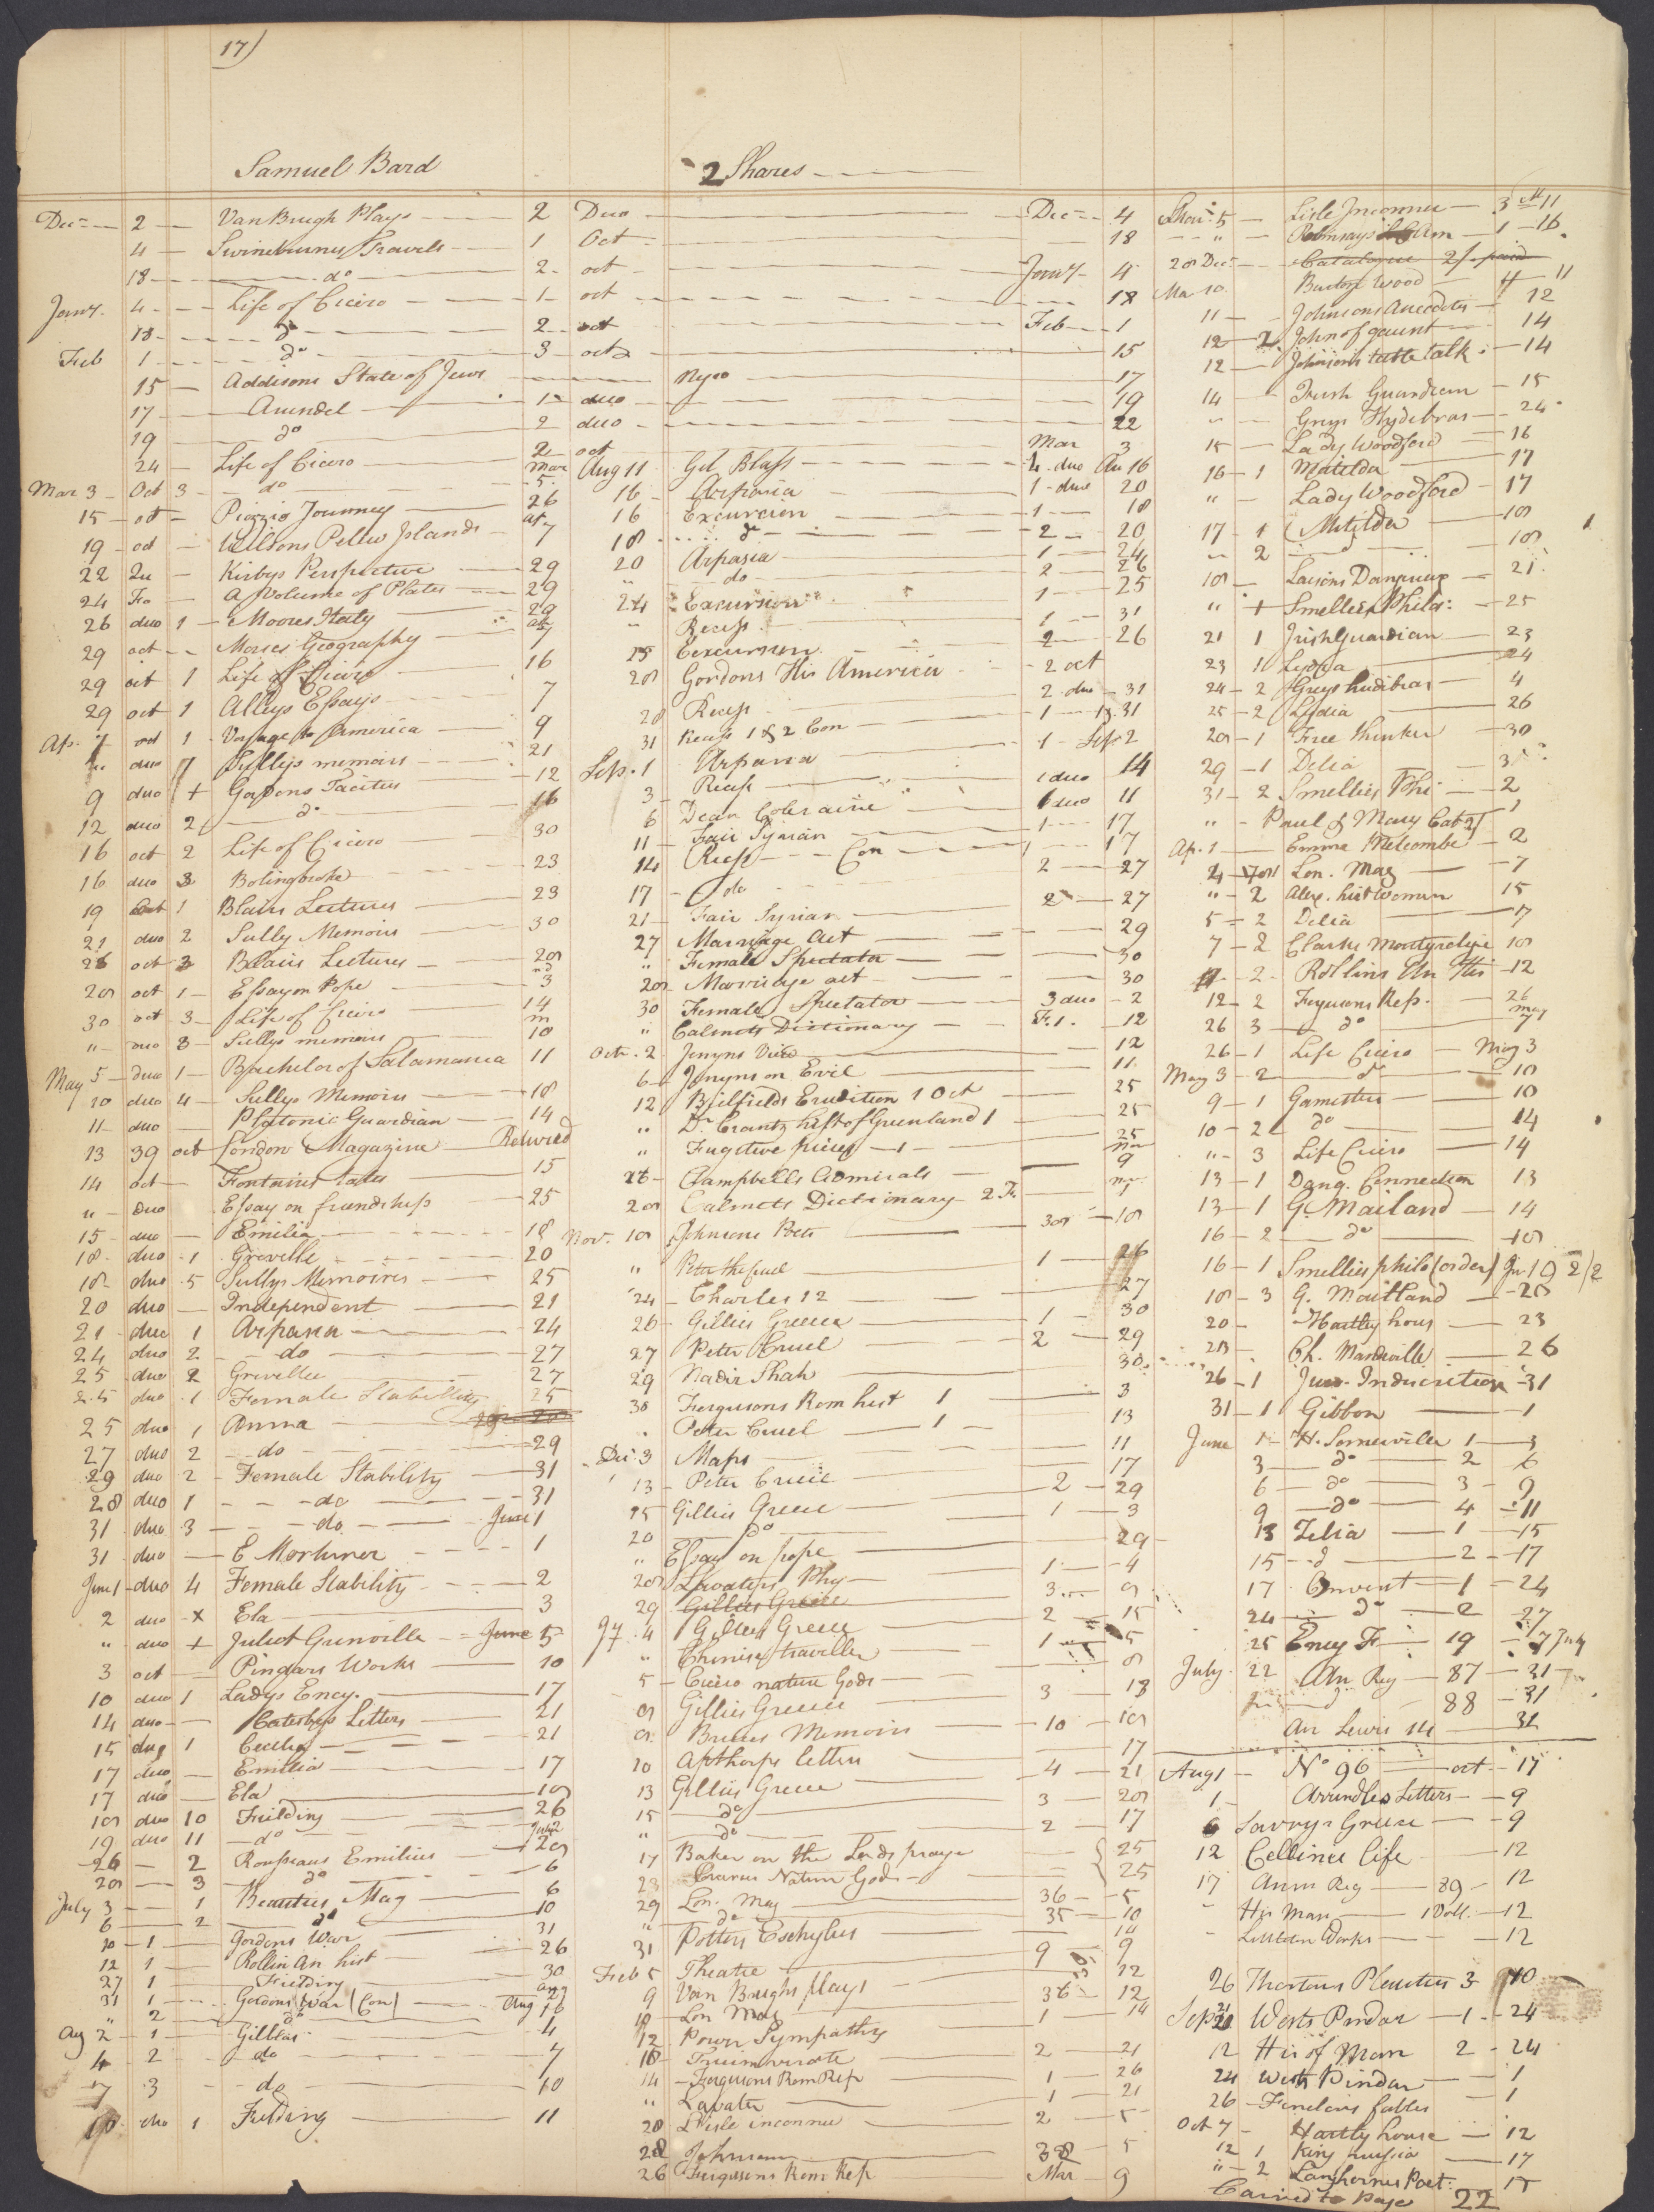 17)
Samuel Bard 2 Shares
Dec 2 Van Brugh Plays 2 Duo Dec 4
4 Swineburnes Travels 1 Oct 18
18 do 2 oct Jany 4
Jany 4 Life of Cicero 1 oct 18
18 do 2 oct Feb 1
Feb 1 do 3 oct 15
15 Addisons State of Jews 17
17 Arundel 1 duo 19
19 do 2 duo 22
24 Life of Cicero 2 oct Mar 3
Mar 3 Oct 3 do Mar 5
15 oct Piozzis Journey 26
19 oct Wilsons Pellew Islands 7
22 Kirbys Perspective 29
24 Fo A Volume of Plates 29
26 duo 1 Moores Italy 29
29 oct Morses Geography 7
29 oct 1 Life of Cicero 16
29 oct 1 Alleys Essays 7
Ap. 7 oct 1 Voyage to America 9
" duo 7 Sullys memoirs 21
9 duo + Gordons Tacitus 12
12 duo 2 do 16
16 oct 2 Life of Cicero 30
16 duo 3 Bolingbroke 23
19 Oct 1 Blairs Lectures 23
21 duo 2 Sully Memoirs 30
26 oct 3 Blairs Lectures 28
28 oct 1 Essay on Pope 3
30 oct 3 Life of Cicero 14
" duo 3 Sullys memoirs 10
May 5 duo 1 Bachelor of Salamanca 11
10 duo 4 Sullys Memoirs 18
11 duo Platonic Guardian 14
13 39 oct London Magazine Returned
14 oct Fontaines tales 15
" duo Essay on friendship 25
15 duo Emilia 18
18 duo 1 Greville 20
18 duo 5 Sullys Memoires 25
20 duo Independent 21
21 duo 1 Arpasia 24
24 duo 2 do 27
25 duo 2 Greville 27
25 duo 1 Female Stability 25
25 duo 1 Anna
27 duo 2 do 29
29 duo 2 Female Stability 31
28 duo 1 do 31
31 duo 3 do June 1
31 duo E Mortimer 1
June 1 duo 4 Female Stability 2
2 duo x Ela 3
" duo + Juliet Grinville June 5
3 oct Pindars Works 10
10 duo 1 Ladys Ency. 17
14 duo Catesbys Letters 21
15 duo 1 Cecelia 21
17 duo Emilia 17
17 duo Ela 18
18 duo 10 Fielding 26
19 duo 11 do July 2
26 2 Rousseaus Emilius 28
28 3 do 6
July 3 1 Beauties Mag 6
6 2 do 10
10 1 Gordons War 31
12 1 Rollin An hist 26
27 1 Fielding 30
31 1 Gordons War (Con) Aug
" 2 do Aug 16
Aug 2 1 Gilblas 4
4 2 do 7
7 3 do 10
10 duo 1 Fielding 11
Aug 11 Gil Blass 4 duo Au 16
16 Arpasia 1 duo 20
16 Excursion 1 18
18 do 2 20
20 Arpasia 1 24
" do 2 26
24 Excursion 1 25
" Recess 1 31
25 Excursion 2 26
28 Gordons His America 2 oct
28 Recess 2 duo 31
31 Recess 1 & 2 Con 1 31
Sep. 1 Arpasia 1 Sep 2
3 Recess 14
6 Dean Coleraine 1 duo 11
11 Fair Syrian 1 17
14 Recess Con 1 17
17 do 2 27
21 Fair Syrian 2 27
27 Marriage Act 29
" Female Spectator 30
28 Marriage act 30
30 Female Spectator 3 duo 2
" Calmets Dictionary F. 1. 12
Octr. 2 Jenyns View 12
6 Jenyns on Evil 11
12 Bielfields Erudition 1 Oct 25
" Dr. Crantz hist of Greenland 1 25
" Fugitive pieces 1 25
26 Campbells Admirals 9
28 Calmets Dictionary 2 F.
Nov. 18 Johnsons Poets 38 18
" Peter the Cruel 1 26
24 Charles 12 27
26 Gillies Greece 1 30
27 Peter Cruel 2 29
29 Nadir Shah 30
30 Fergusons Rom hist 1 3
Peter Cruel 1 13
Dec. 3 Maps 11
13 Peter Cruel 17
15 Gillies Greece 2 29
20 do 1 3
" Essay on pope 29
28 Lavaters Phy 1 4
29 Gillies Greece 3 9
Jy. 4 Gillies Greece 2 15
" Chinese traveller 1 5
5 Cicero nature Gods 8
9 Gillies Greece 3 18
9 Bruces Memoirs 10 18
10 Apthorps letters 17
13 Gillies Greece 4 21
15 do 3 28
" do 2 17
17 Baker on the Lords prayer 25
23 Ciceros Nature Gods 25
29 Lon. Mag 36 5
" do 35 10
31 Potters Eschylus 14
Feb 5 Theatre 9 9
9 Van Brughs plays 12
10 Lon Mag 36 12
12 Power Sympathy 1 14
18 Triumvirate 2 21
14 Fergusons Rom Rep 1 26
" Lavater 1 21
20 L'Isle inconnue 2 5
28 Johnson 38 5
26 Fergusons Rom Rep Mar 9
5 Lisle Inconnue 3 11
" Ramsays Am 1 16
28 Dec. Catalogue 2/ paid
Mar 10 Burton Wood 11
11 Johnsons Anecdotes 12
12 2 John of gaunt 14
12 Johnsons table talk 14
14 Irish Guardian 15
" Greys Hydebras 24
15 Lady Woodford 16
16 1 Matilda 17
" Lady Woodford 17
17 1 Matilda 18
" 2 18
18 Laisons Dangerieux 21
" + Smellies Philo: 25
21 1 Irish Guardian 23
23 1 Lydia 24
24 2 Greys hudibras 4
25 2 Lydia 26
28 1 Free thinker 30
29 1 Delia 31
31 2 Smellies Phi 2
" Paul & Mary 1
Ap. 1 Emma Melcombe 2
2 Lon. Mag 7
" 2 Alex. hist Women 15
5 2 Delia 17
7 2 Clarks Martyroligie 18
2 Rollins An His 12
12 2 Fergusons Rep. 26
26 3 do 7
26 1 Life Cicero May 3
May 3 2 do 10
9 1 Gamesters 10
10 2 do 14
" 3 Life Cicero 14
13 1 Dang. Connection 13
13 1 G. Maitland 14
16 2 do 18
16 1 Smellies philo (order) Ju 19 2/2
18 3 G. Maitland 20
20 Hartly hous 23
23 Ch. Mandeville 26
26 1 Juv. Indiscretion 31
31 1 Gibbon 1
June 1 H. Somerville 1 3
3 do 2 6
6 do 3 9
9 do 4 11
13 Zelia 1 15
15 do 2 17
17 Convent 1 24
24 do 2 27
25 Ency F 19 7 July
July 22 An Reg 87 31
do 88 31
An Lewis 14 31
Aug 1 No 96 oct 17
1 Arundles Letters 9
6 Savarys Greece 9
12 Cellinis Life 12
17 Ann Reg 89 12
" His Man 1 Voll. 12
" Littleton Works 12
26 Thortons Plautus 3 10
Sep 21 Wests Pindar 1 24
12 His of Man 2 24
24 Wests Pindar 1
26 Fenelons fables 1
Oct 7 Hartly house 12
12 1 King prussia 17
" 2 Langhornes Poet: 17
Carried to Page 22